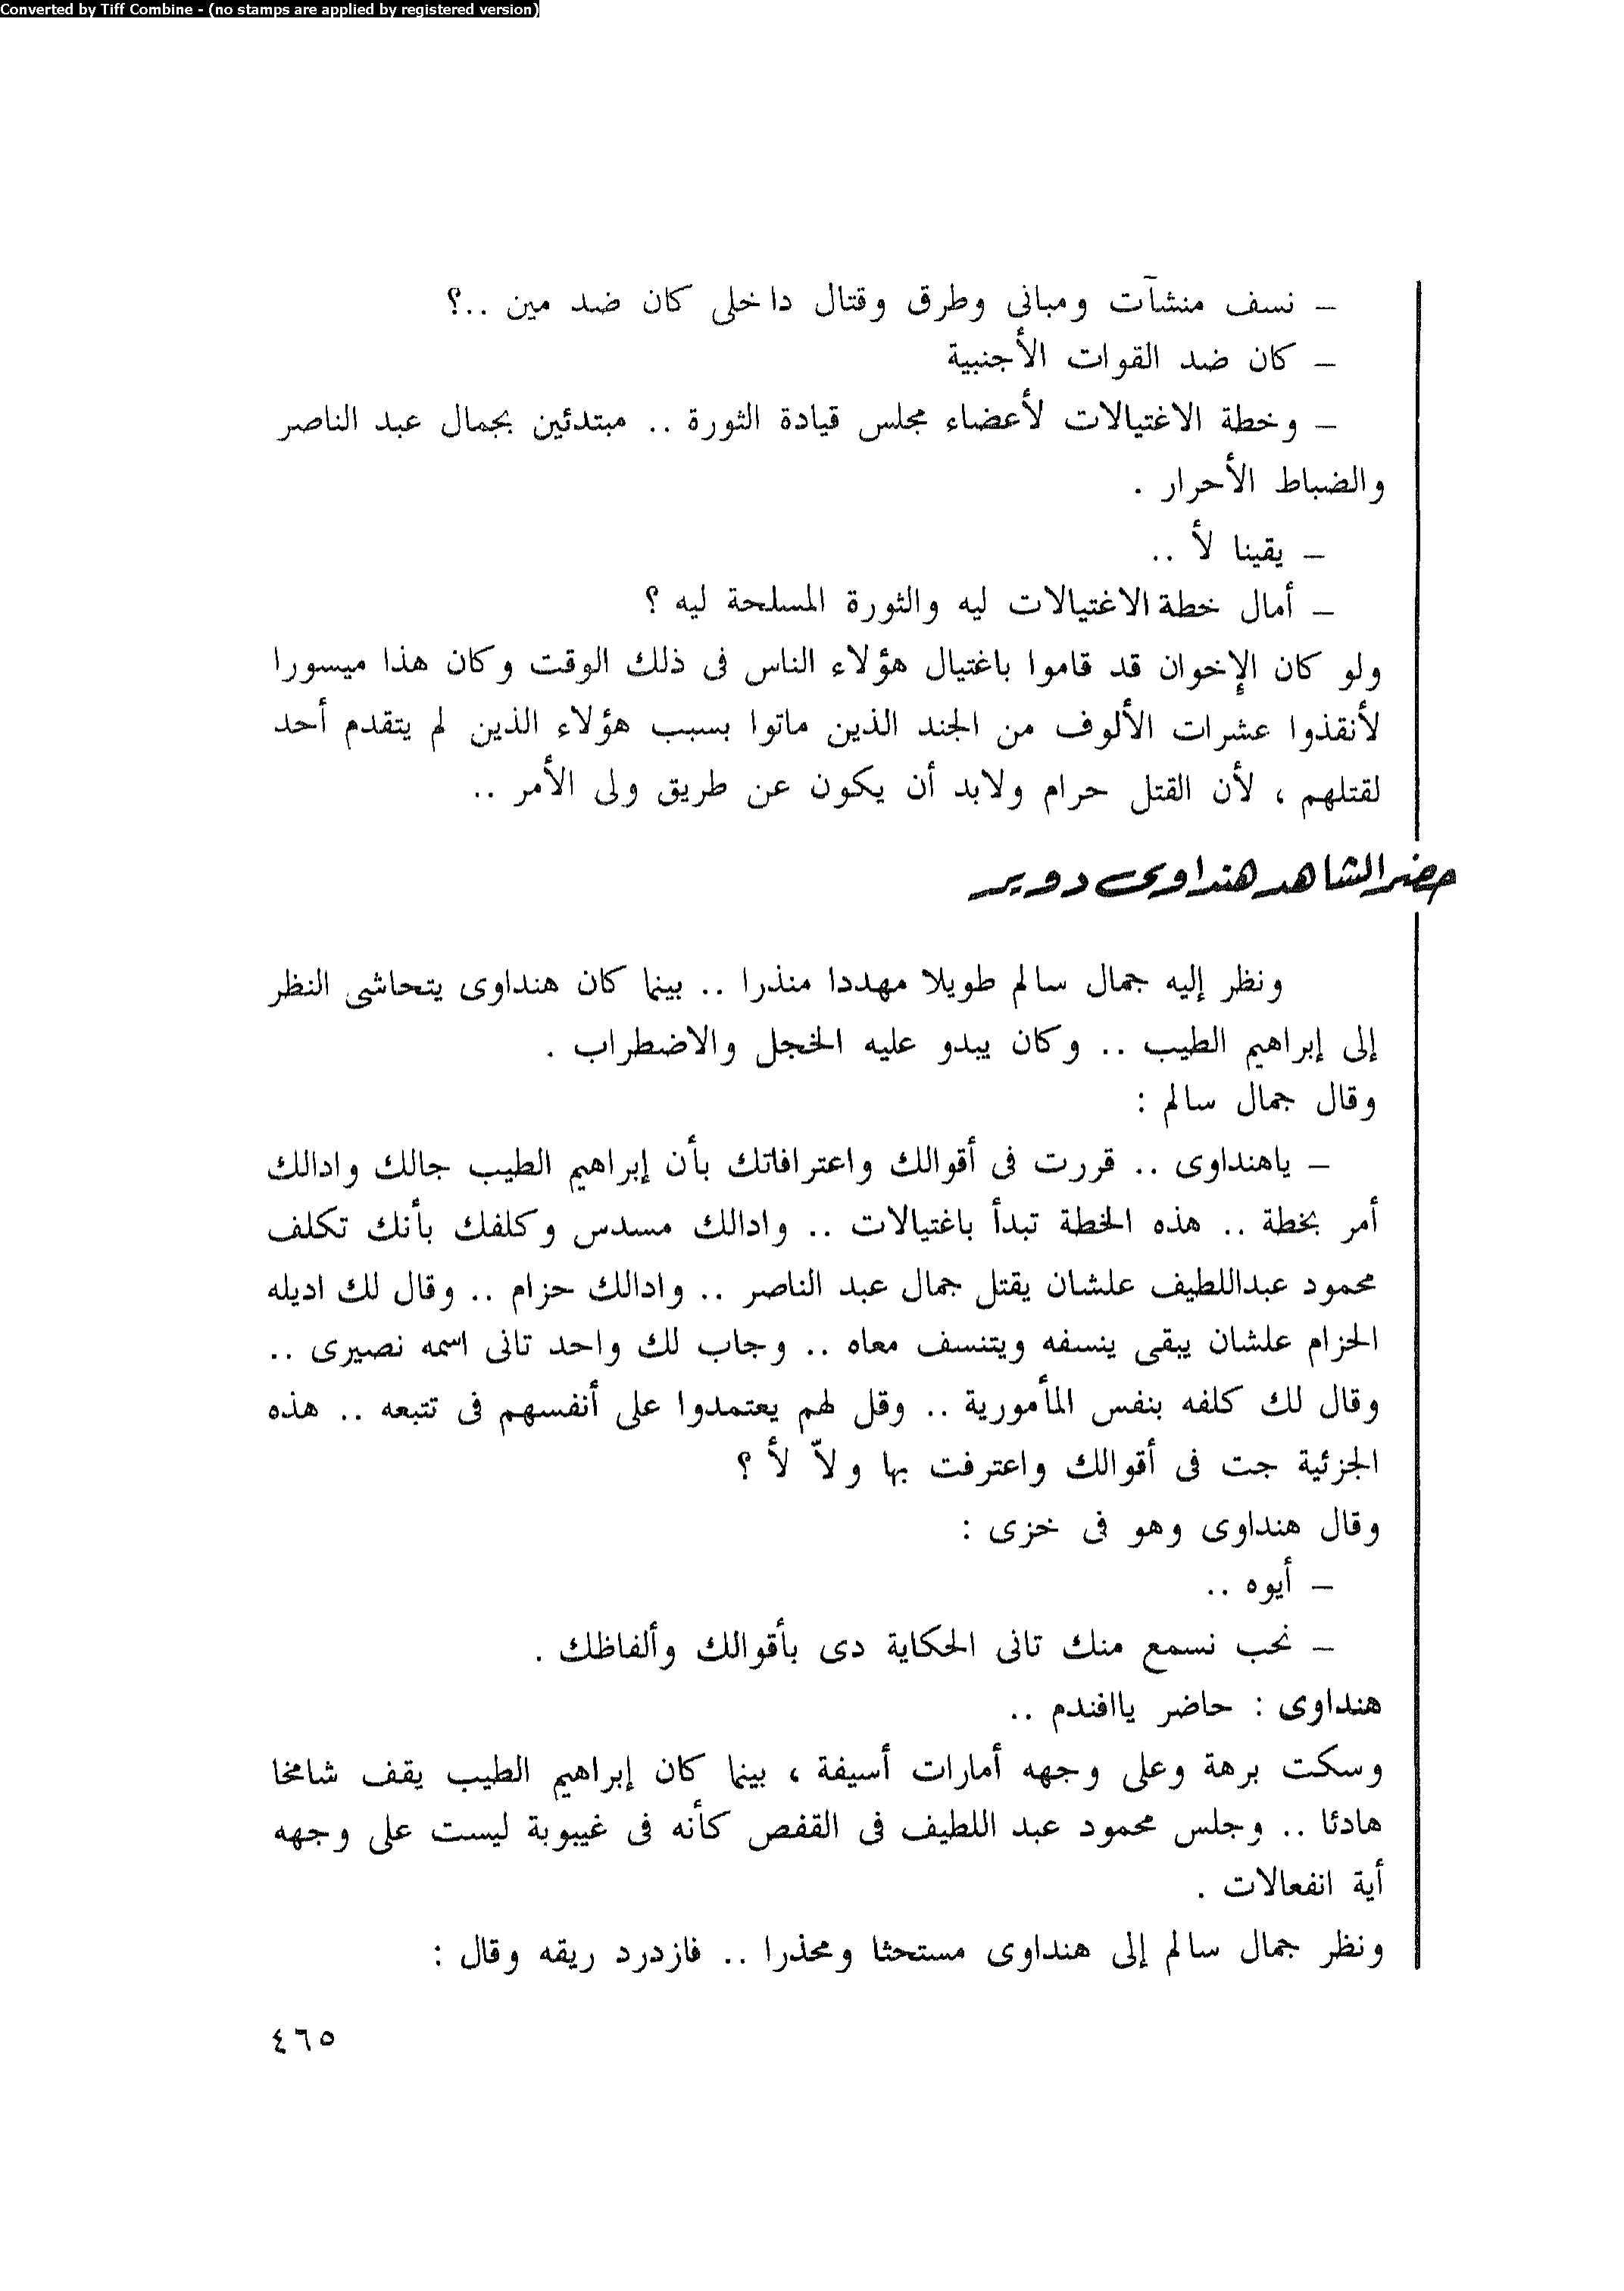 Converted by Tiff Combine - (no stamps are applied by registered version)
– نسف منشآت ومبانى وطرق وقتال داخلى كان ضد مين ..؟
– كان ضد القوات الأجنبية
– وخطة الاغتيالات لأعضاء مجلس قيادة الثورة .. مبتدئين بجمال عبد الناصر
والضباط الأحرار .
– يقينا لأ ..
– أمال خطة الاغتيالات ليه والثورة المسلحة ليه ؟
ولو كان الإخوان قد قاموا باغتيال هؤلاء الناس فى ذلك الوقت وكان هذا ميسورا
لأنقذوا عشرات الألوف من الجند الذين ماتوا بسبب هؤلاء الذين لم يتقدم أحد
لقتلهم ، لأن القتل حرام ولابد أن يكون عن طريق ولى الأمر ..
حضر الشاهد هنداوى دوير
ونظر إليه جمال سالم طويلا مهددا منذرا .. بينما كان هنداوى يتحاشى النظر
إلى إبراهيم الطيب .. وكان يبدو عليه الخجل والاضطراب .
وقال جمال سالم :
– ياهنداوى .. قررت فى أقوالك واعترافاتك بأن إبراهيم الطيب جالك وادالك
أمر بخطة .. هذه الخطة تبدأ باغتيالات .. وادالك مسدس وكلفك بأنك تكلف
محمود عبداللطيف علشان يقتل جمال عبد الناصر .. وادالك حزام .. وقال لك اديله
الحزام علشان يبقى ينسفه ويتنسف معاه .. وجاب لك واحد تانى اسمه نصيرى ..
وقال لك كلفه بنفس المأمورية .. وقل لهم يعتمدوا على أنفسهم فى تتبعه .. هذه
الجزئية جت فى أقوالك واعترفت بها ولاّ لأ ؟
وقال هنداوى وهو فى خزى :
– أيوه ..
– نحب نسمع منك تانى الحكاية دى بأقوالك وألفاظك .
هنداوى : حاضر ياافندم ..
وسكت برهة وعلى وجهه أمارات أسيفة ، بينما كان إبراهيم الطيب يقف شامخا
هادئا .. وجلس محمود عبد اللطيف فى القفص كأنه فى غيبوبة ليست على وجهه
أية انفعالات .
ونظر جمال سالم إلى هنداوى مستحثا ومحذرا .. فازدرد ريقه وقال :
٤٦٥